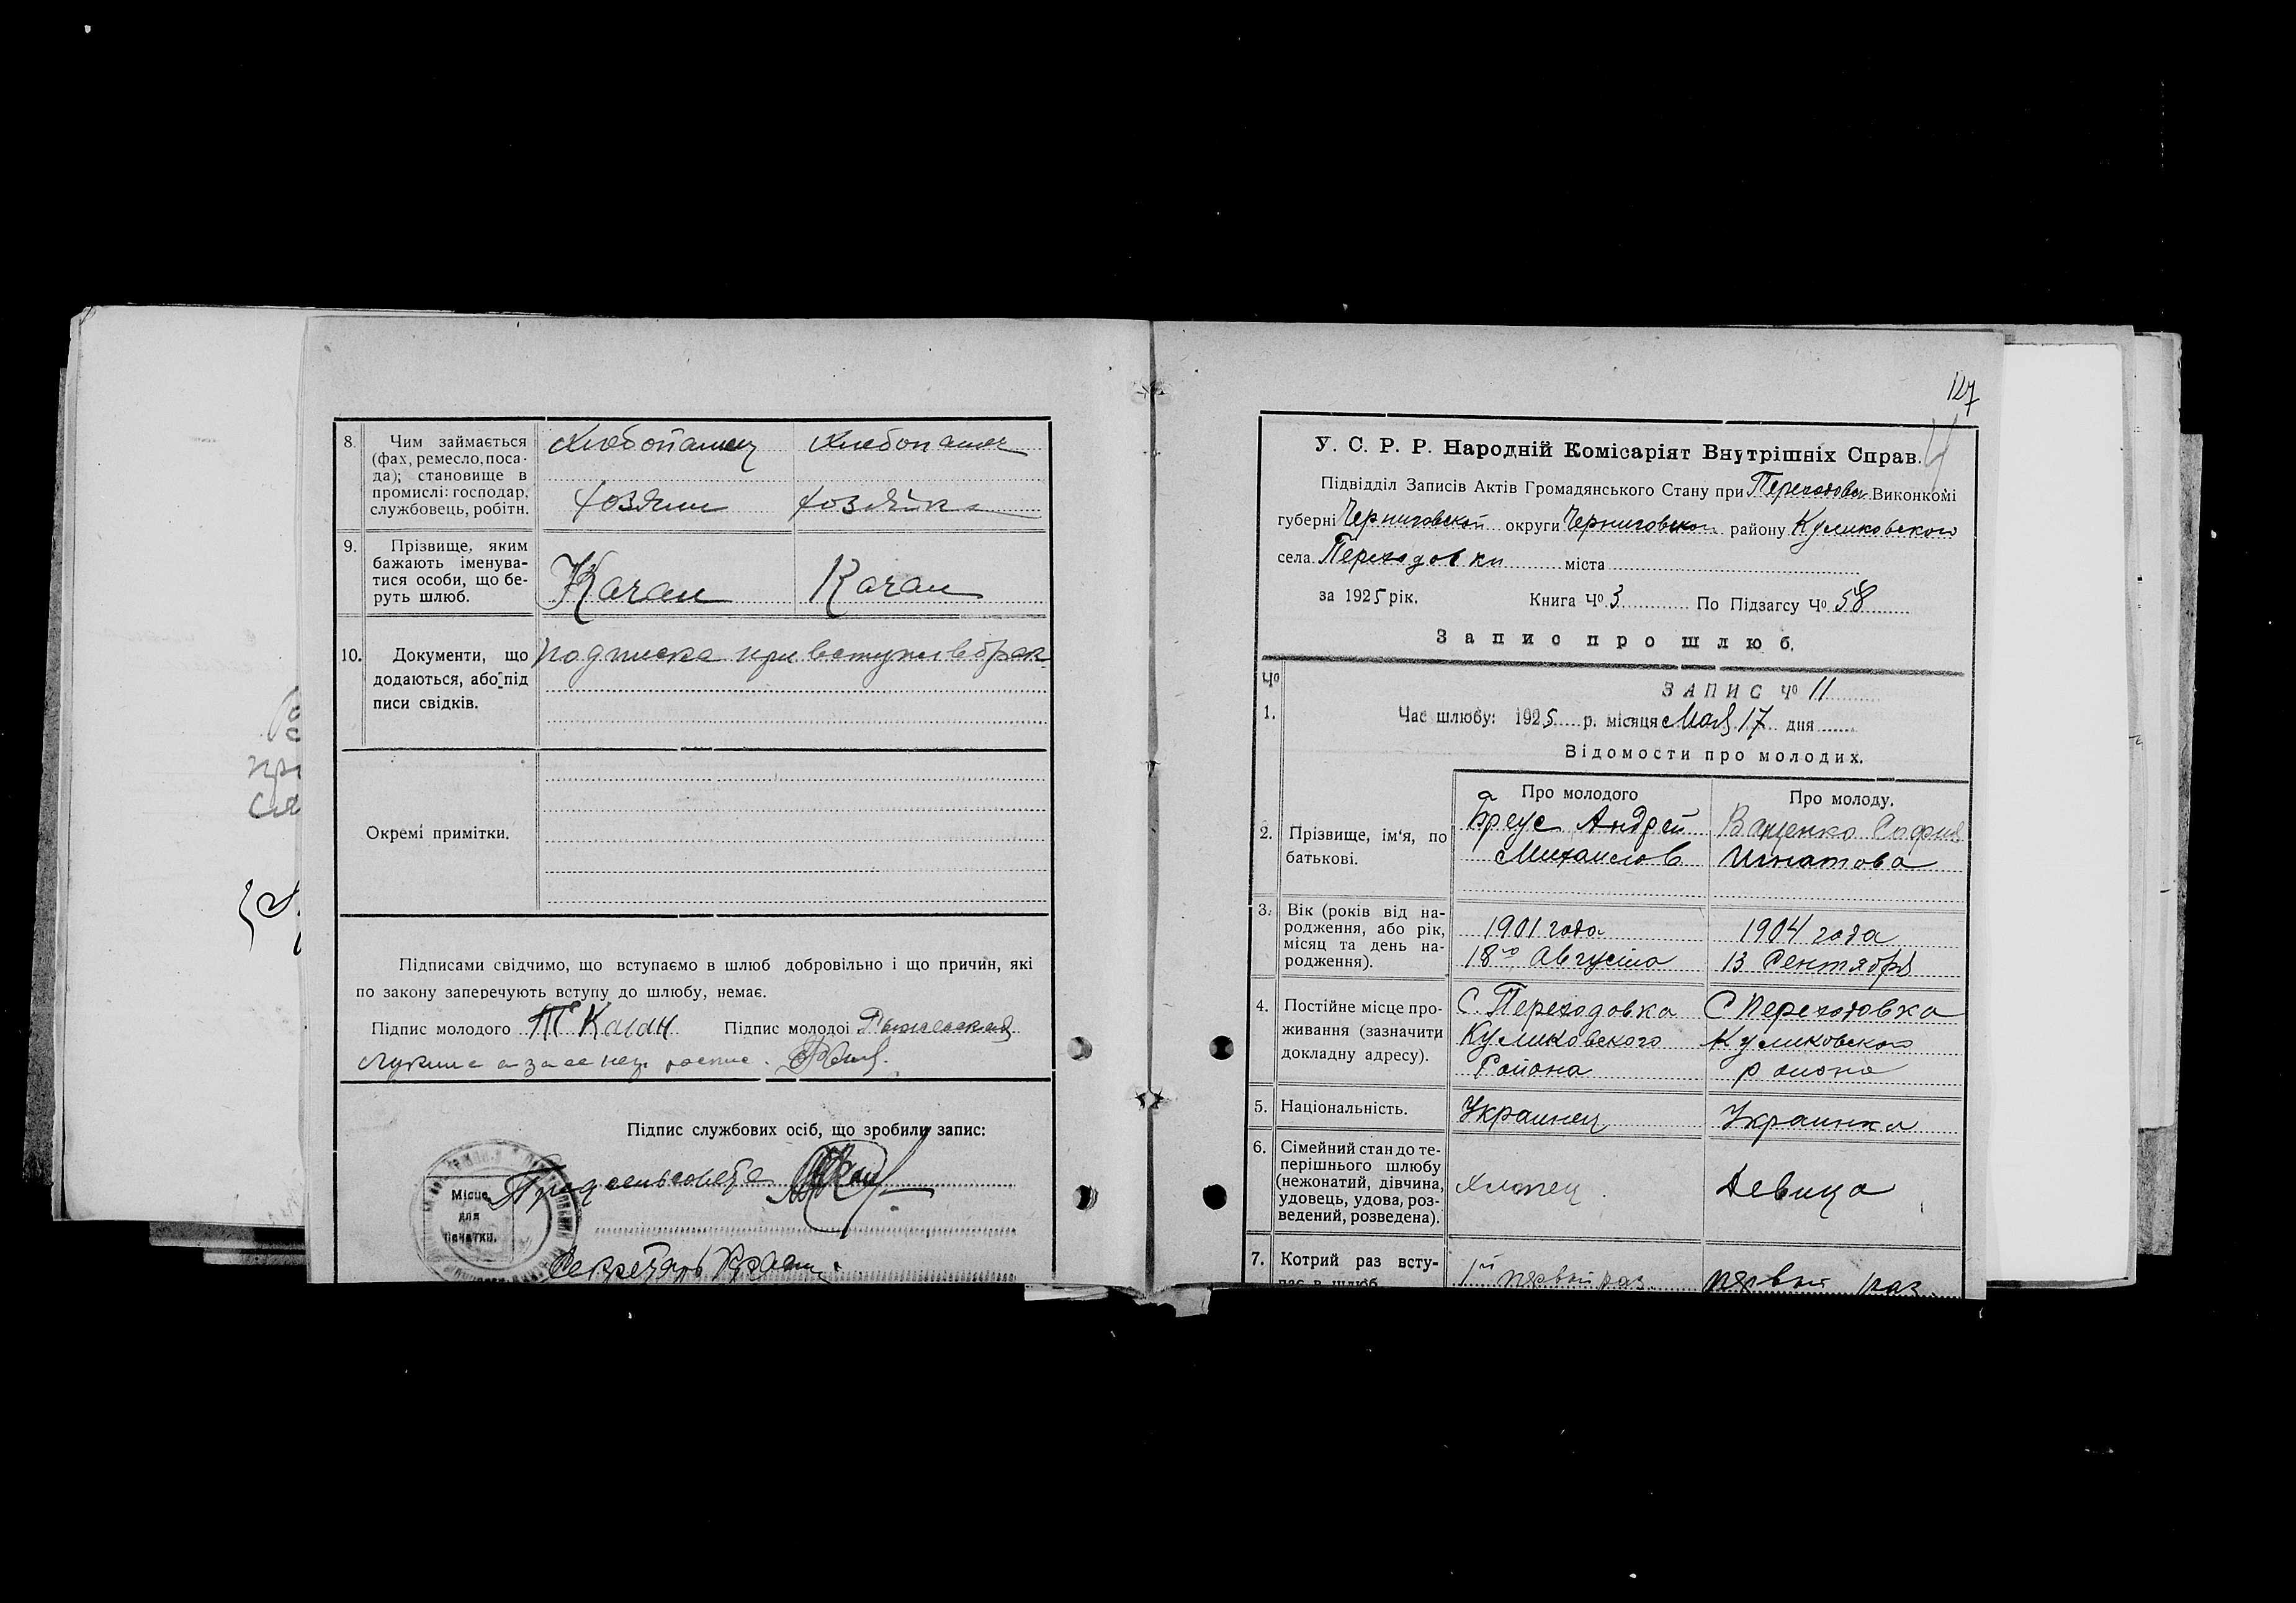 8. Чим займається (фах, ремесло, поса-
да); становище в
промислі: господар,
службовець, робітн.
Хлебопашец Хлебопашец
Хозяин Хозяйка
9. Прізвище, яким
бажають іменува-
тися особи, що бе-
руть шлюб.
Качан Качан
10. Документи, що
додаються, або під
писи свідків.
подписка при вступл в брак
Окремі примітки.
Підписами свідчимо, що вступаємо в шлюб добровільно і що причин, які
по закону заперечують вступу до шлюбу, немає.
Підпис молодого Т Качан Підпис молодої
Підпис службових осіб, що зробили запис:
Місце
для
печатки.
Пред сельсовета
Секретарь
127
У. С. Р. Р. Народній Комісаріят Внутрішніх Справ.
Підвідділ Записів Актів Громадянського Стану при Переходов Виконкомі
губерні Черниговской округи Черниговской району Куликовского
села Переходовки міста
за 1925 рік. Книга Чо 3 По Підзагсу Чо 58
Запис про шлюб.
Чо
ЗАПИС Чо 11
1. Час шлюбу: 1925 р. місяця Мая 17 дня
Відомости про молодих.
Про молодого Про молоду.
2. Прізвище, ім'я, по
батькові.
Бреус Андрей
Михаилов
Ващенко София
Игнатова
3. Вік (років від на-
родження, або рік,
місяц та день на-
родження).
1901 года
18го Августа
1904 года
13 Сентября
4. Постійне місце про-
живання (зазначити
докладну адресу).
С. Переходовка
Куликовского
Района
С Переходовка
Куликовского
района
5. Національність.
Украинец Украинка
6. Сімейний стан до те-
перішнього шлюбу
(нежонатий, дівчина,
удовець, удова, роз-
ведений, розведена).
Хлопец Девица
7. Котрий раз всту-
пає в шлюб
1й первый раз первый раз